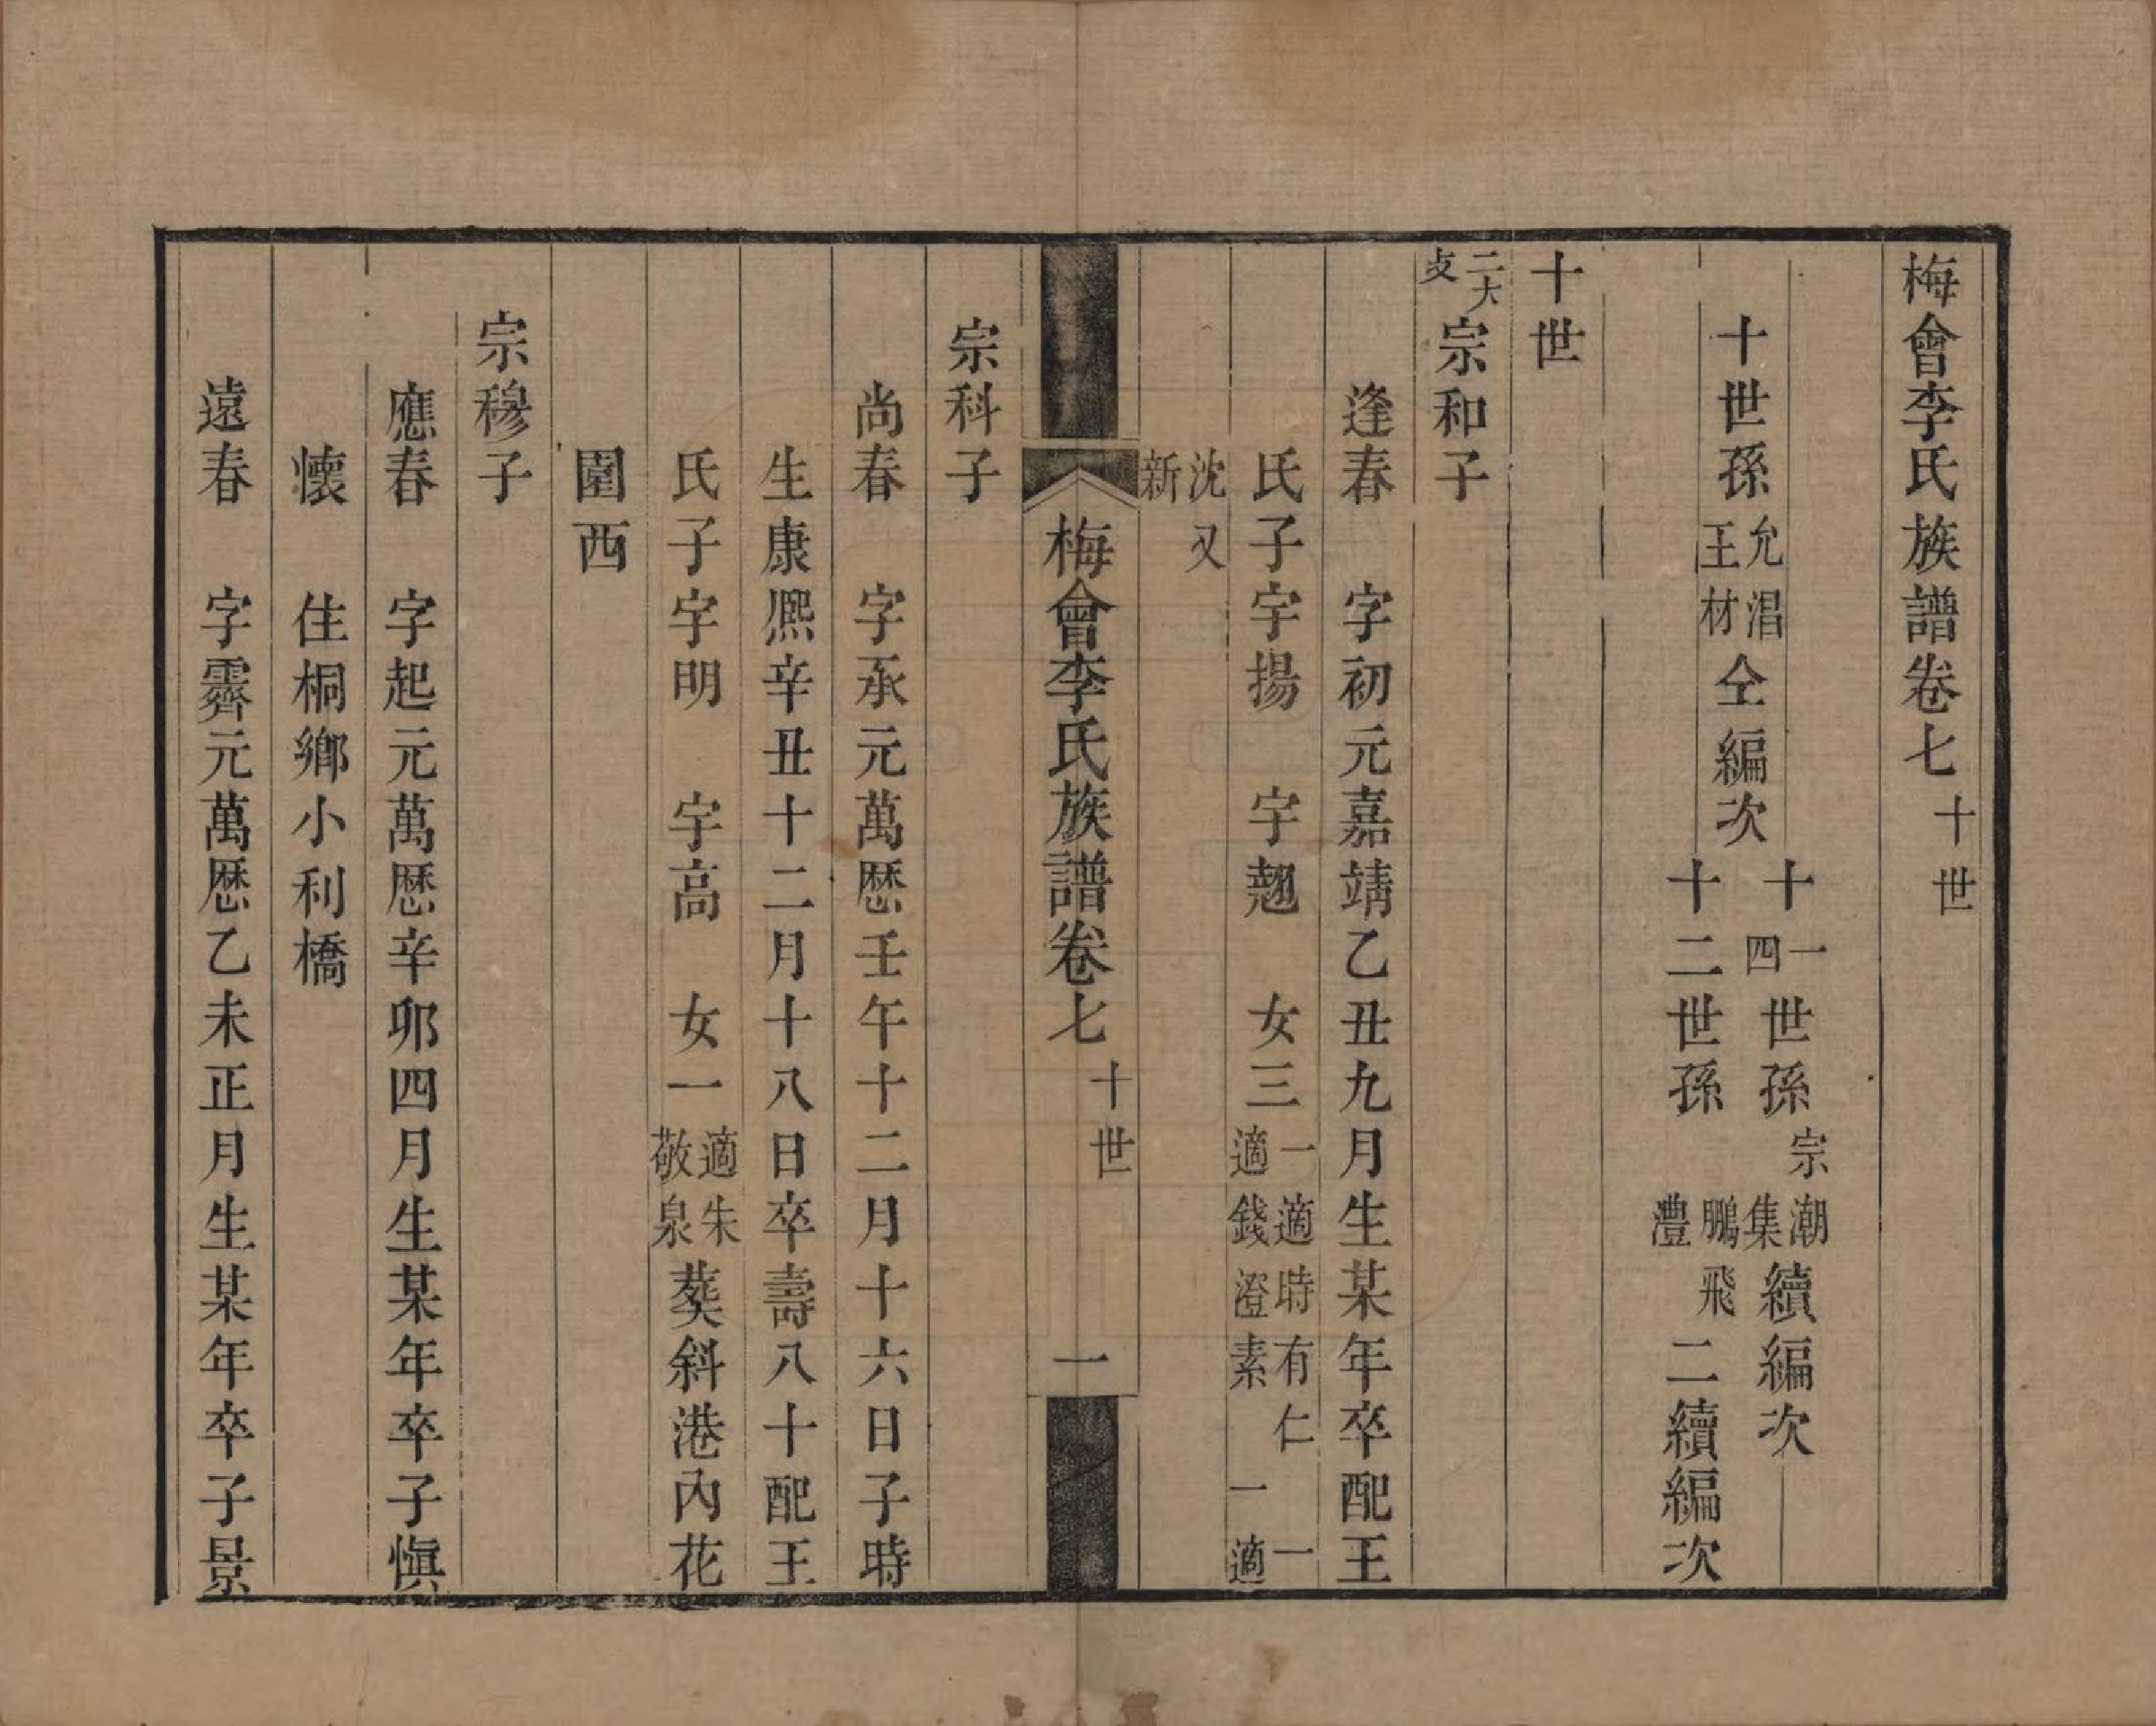 梅會李氏族譜卷七 十世
十世孫 允淐 王材 仝編次
十一世孫 宗潮 續編次
十四世孫 集
十二世孫 鵬飛 灃 二續編次
十世
二大支 宗和子
逢春 字初元嘉靖乙丑九月生某年卒配王
氏子宇揚 宇翹 女三 一適時有仁 一適錢澄素 一適
沈又新
梅會李氏族譜卷七 十世 一
宗科子
尚春 字承元萬歷壬午十二月十六日子時
生康熈辛丑十二月十八日卒壽八十配王
氏子宇明 宇高 女一 適朱敬泉 葬斜港內花
園西
宗穆子
應春 字起元萬歷辛卯四月生某年卒子愼
懷 住桐鄉小利橋
遠春 字霽元萬歷乙未正月生某年卒子景